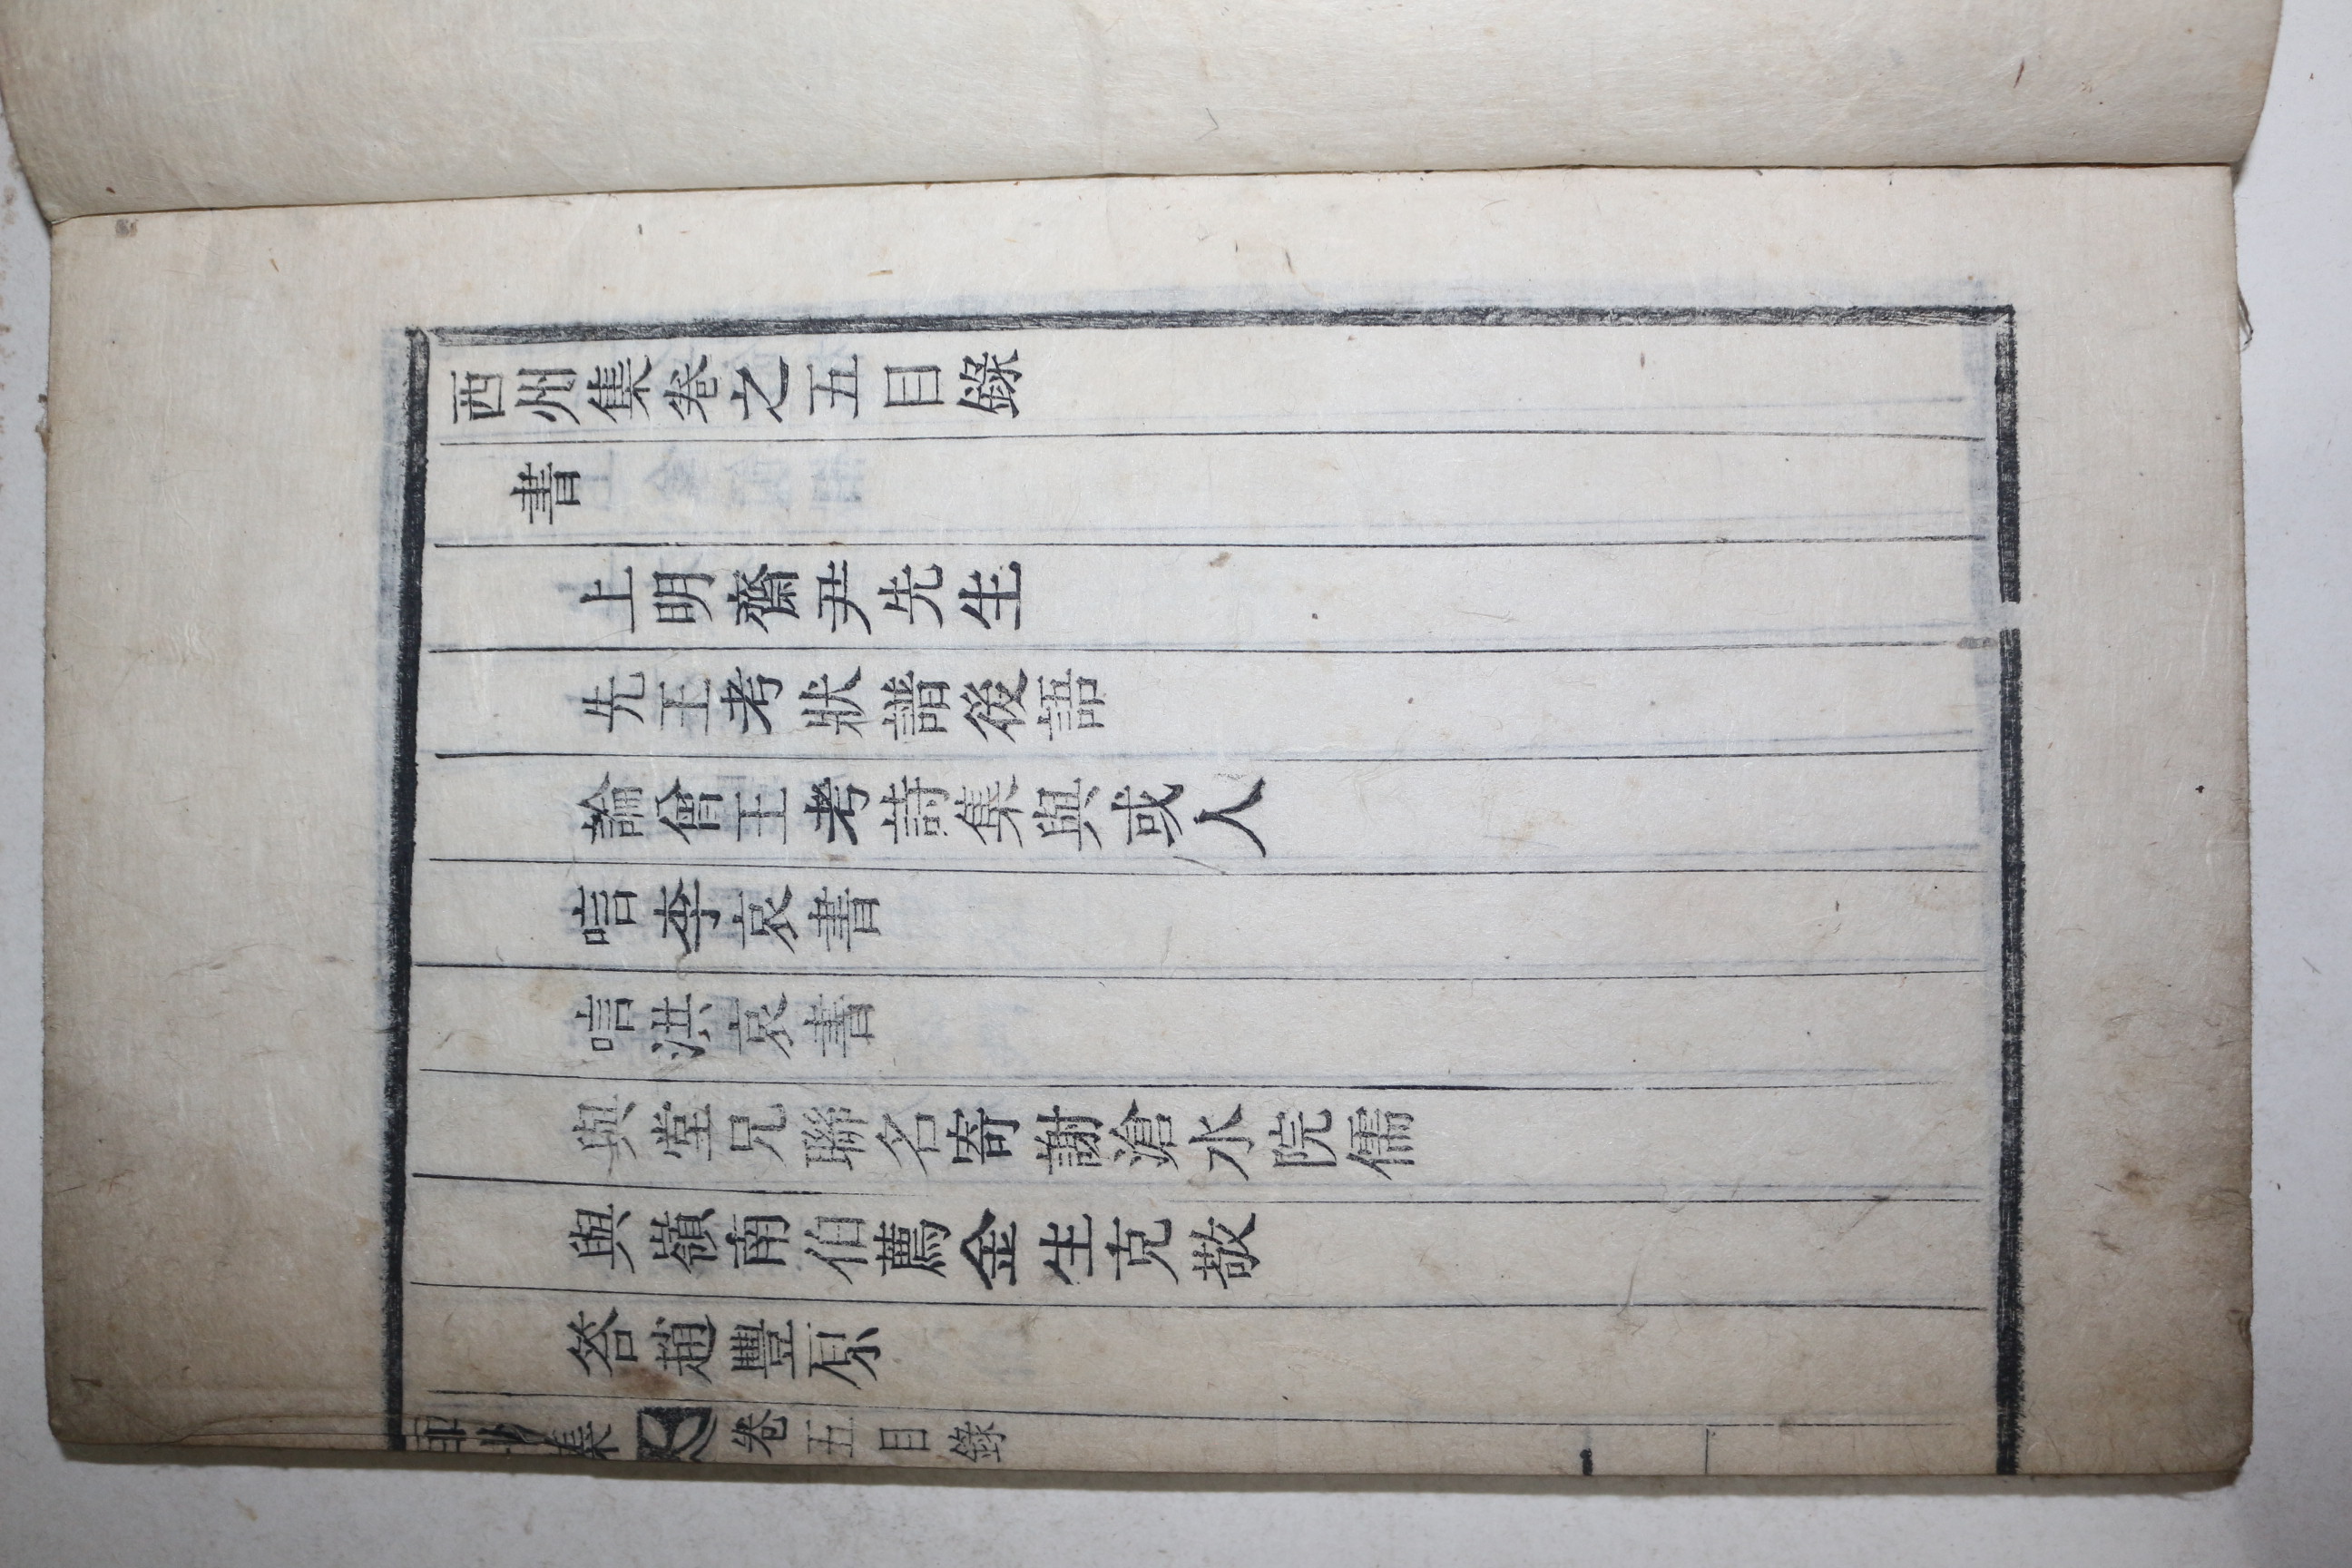 西州集卷之五目錄
書
上明齋尹先生
先王考狀譜後語
論曾王考詩集與或人
唁李哀書
唁洪哀書
與堂兄聯名寄謝滄水院儒
與嶺南伯薦金生克敬
答趙豐原
西州集 卷五目錄 一